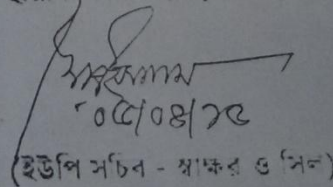 ০৫/০৪/২৫
(ইউপি সচিব - স্বাক্ষর ও সিল)